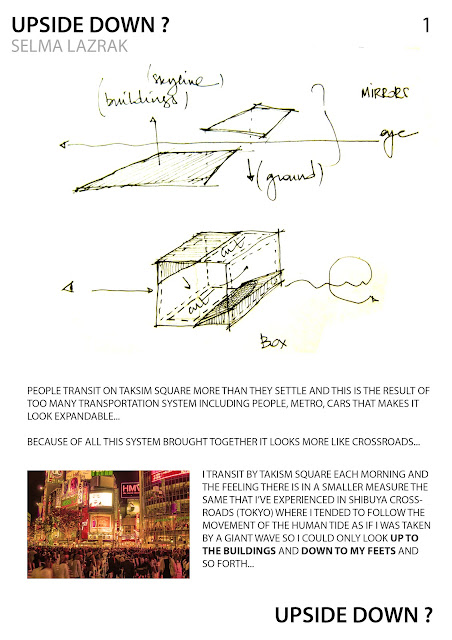 UPSIDE DOWN ?
1
SELMA LAZRAK
(skyline)
(buildings)
MIRRORS
eye
(ground)
cut
cut
BOX
PEOPLE TRANSIT ON TAKSIM SQUARE MORE THAN THEY SETTLE AND THIS IS THE RESULT OF
TOO MANY TRANSPORTATION SYSTEM INCLUDING PEOPLE, METRO, CARS THAT MAKES IT
LOOK EXPANDABLE...
BECAUSE OF ALL THIS SYSTEM BROUGHT TOGETHER IT LOOKS MORE LIKE CROSSROADS...
I TRANSIT BY TAKISM SQUARE EACH MORNING AND
THE FEELING THERE IS IN A SMALLER MEASURE THE
SAME THAT I'VE EXPERIENCED IN SHIBUYA CROSS-
ROADS (TOKYO) WHERE I TENDED TO FOLLOW THE
MOVEMENT OF THE HUMAN TIDE AS IF I WAS TAKEN
BY A GIANT WAVE SO I COULD ONLY LOOK UP TO
THE BUILDINGS AND DOWN TO MY FEETS AND
SO FORTH...
HMV
UPSIDE DOWN ?